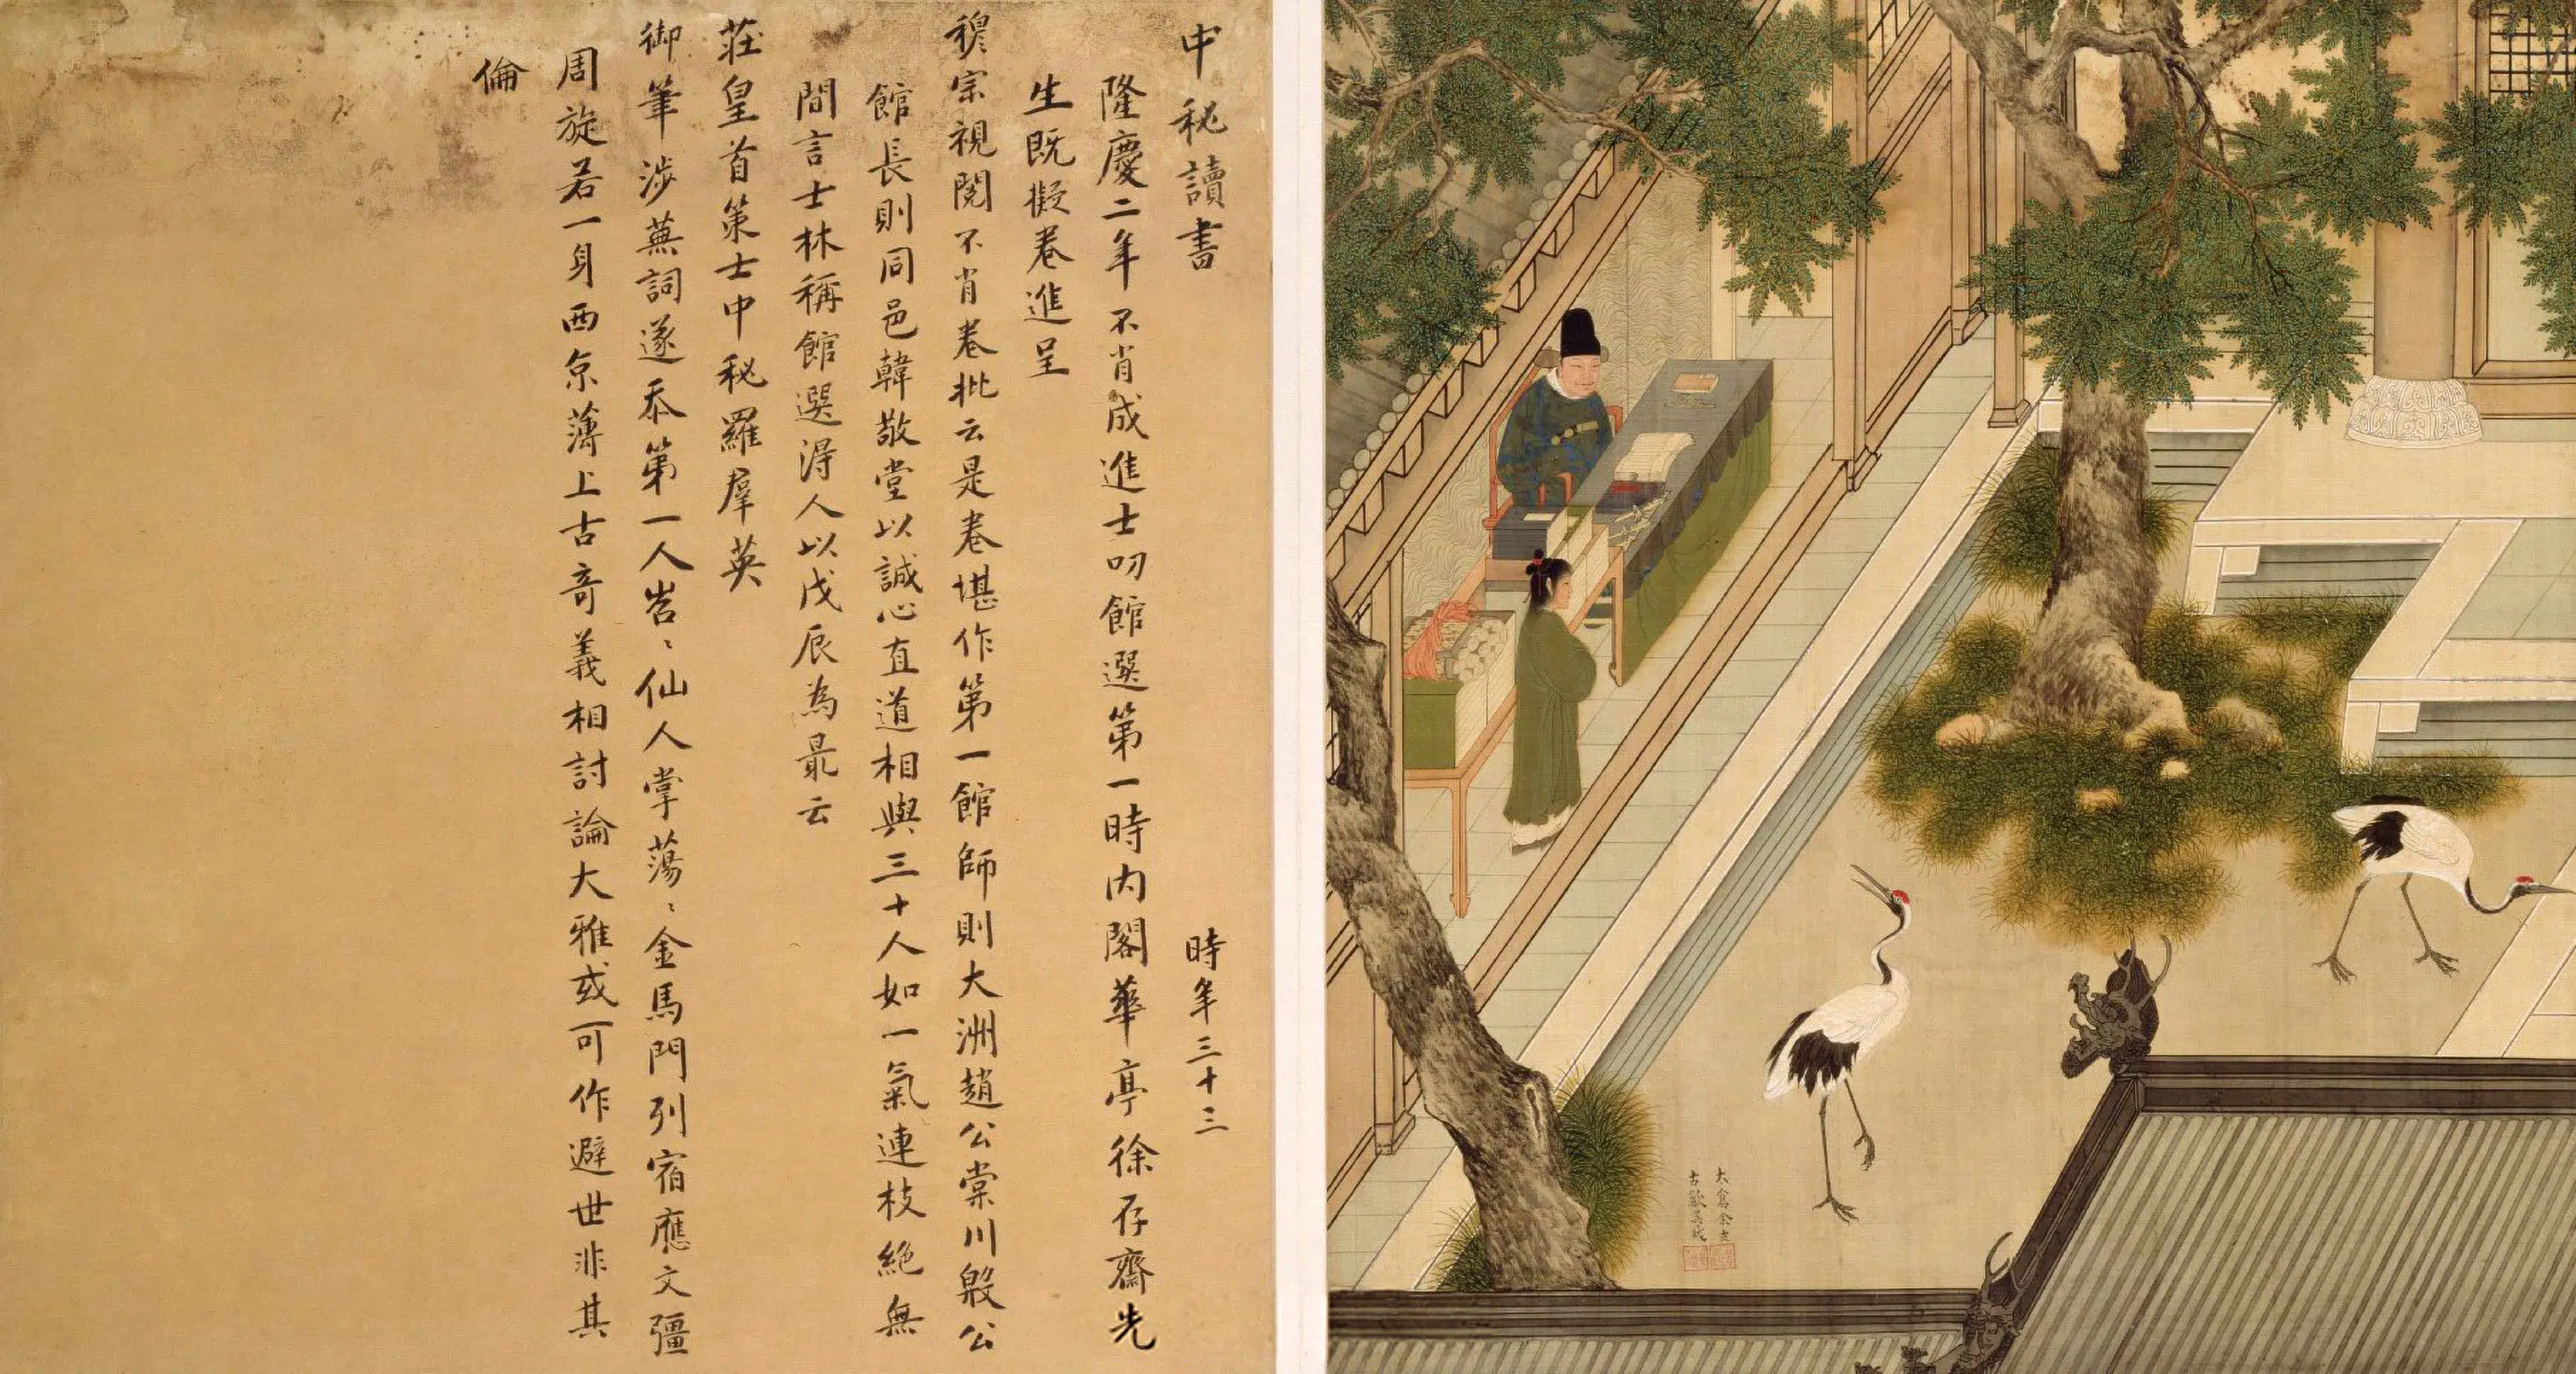 中秘讀書　時年三十三
隆慶二年不肖成進士叨館選第一時内閣華亭徐存齋先
生既擬卷進呈
穆宗視閱不肖卷批云是卷堪作第一館師則大洲趙公棠川殷公
館長則同邑韓敬堂以誠心直道相與三十人如一氣連枝絶無
間言士林稱館選得人以戊辰為最云
莊皇首策士中秘羅羣英
御筆涉蕪詞遂忝第一人岧〻仙人掌蕩〻金馬門列宿應文彊
周旋若一身西京薄上古奇義相討論大雅或可作避世非其
倫
太倉余士
古歙吳鉞